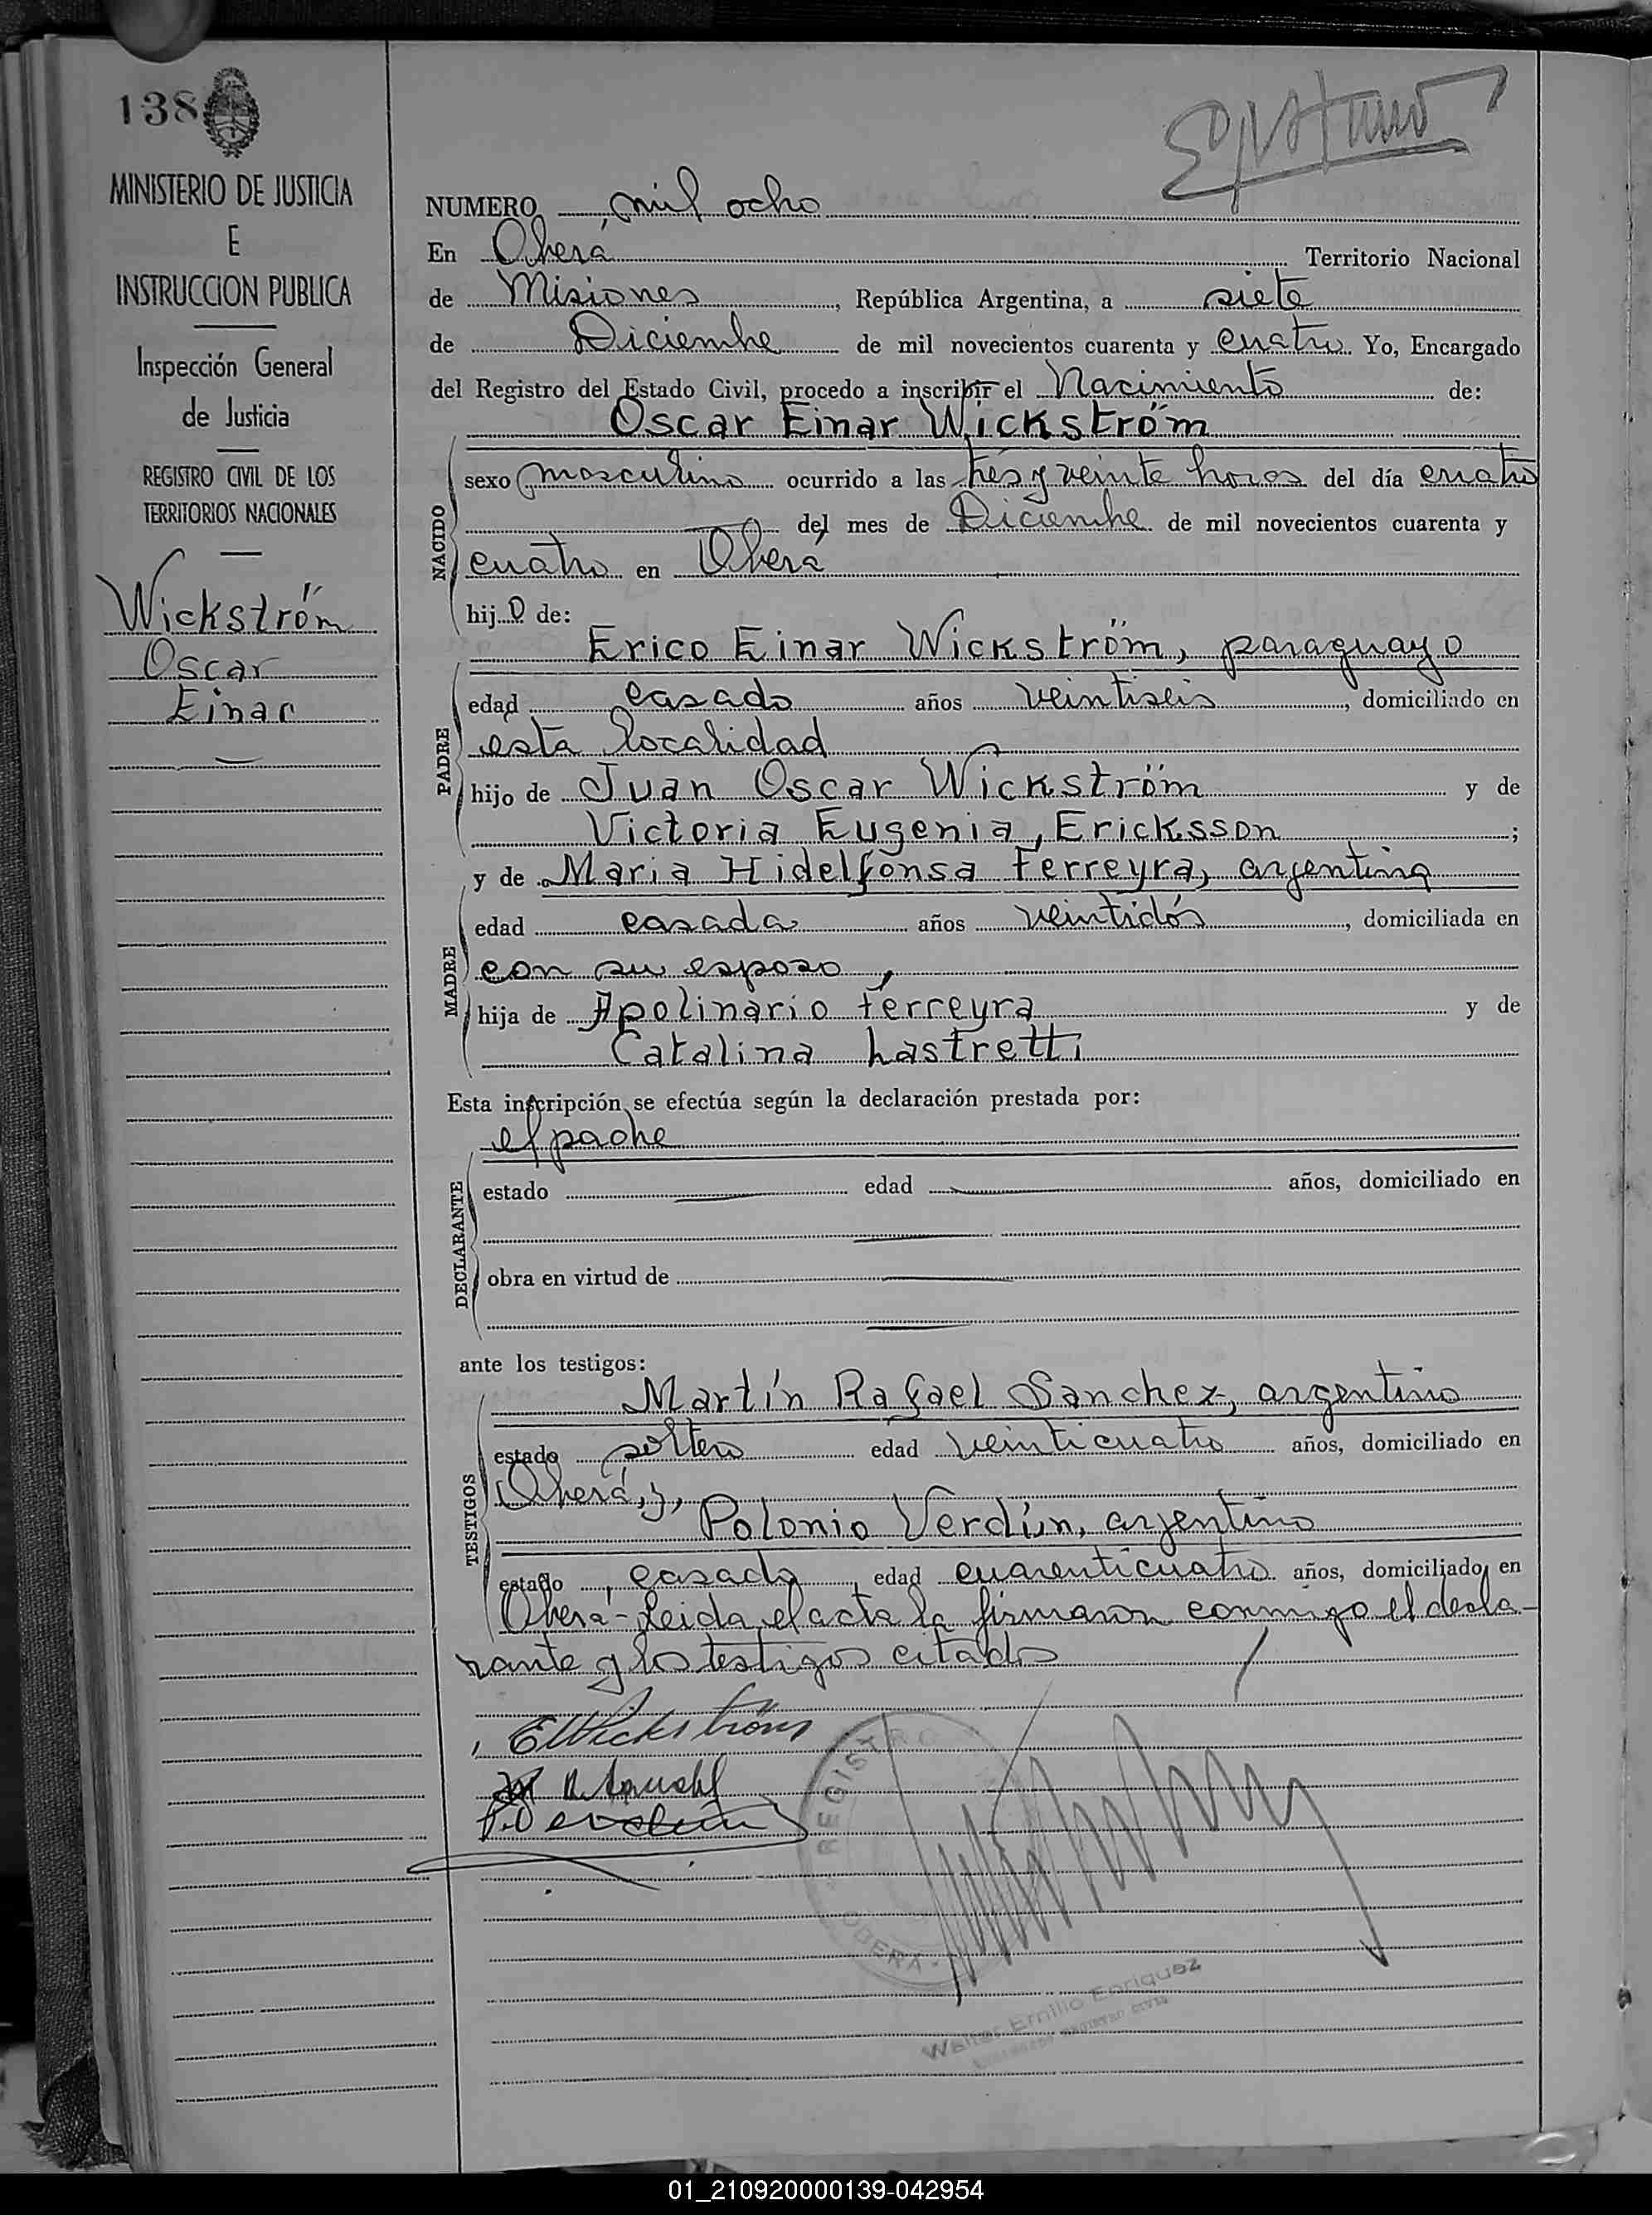 138
MINISTERIO DE JUSTICIA
E
INSTRUCCION PUBLICA
Inspección General
de Justicia
REGISTRO CIVIL DE LOS
TERRITORIOS NACIONALES
Wickström
Oscar
Einar
NUMERO mil ocho
En Oberá Territorio Nacional
de Misiones, República Argentina, a siete
de Diciembre de mil novecientos cuarenta y cuatro Yo, Encargado
del Registro del Estado Civil, procedo a inscribir el Nacimiento de:
Oscar Einar Wickström
NACIDO
sexo masculino ocurrido a las tres y veinte horas del día cuatro
del mes de Diciembre de mil novecientos cuarenta y
cuatro en Oberá
hijo de:
PADRE
Erico Einar Wickström, paraguayo
edad casado años veintiseis, domiciliado en
esta localidad
hijo de Juan Oscar Wickström y de
Victoria Eugenia, Ericksson;
MADRE
y de Maria Hidelfonsa Ferreyra, argentina
edad casada años veintidós, domiciliada en
con su esposo,
hija de Apolinario Ferreyra y de
Catalina Lastretti
Esta inscripción se efectúa según la declaración prestada por:
el padre
DECLARANTE
estado edad años, domiciliado en
obra en virtud de
ante los testigos:
TESTIGOS
Martín Rafael Sanchez, argentino
estado soltero edad veinticuatro años, domiciliado en
Oberá, y,
Polonio Verdún, argentino
estado casado, edad cuarenticuatro años, domiciliado en
Oberá- Leida el acta la firmaron conmigo el decla-
rante y los testigos citados
EWickström
P. Verdun
REGISTRO
OBERÁ
Walter Emilio Enriquez
01_210920000139-042954